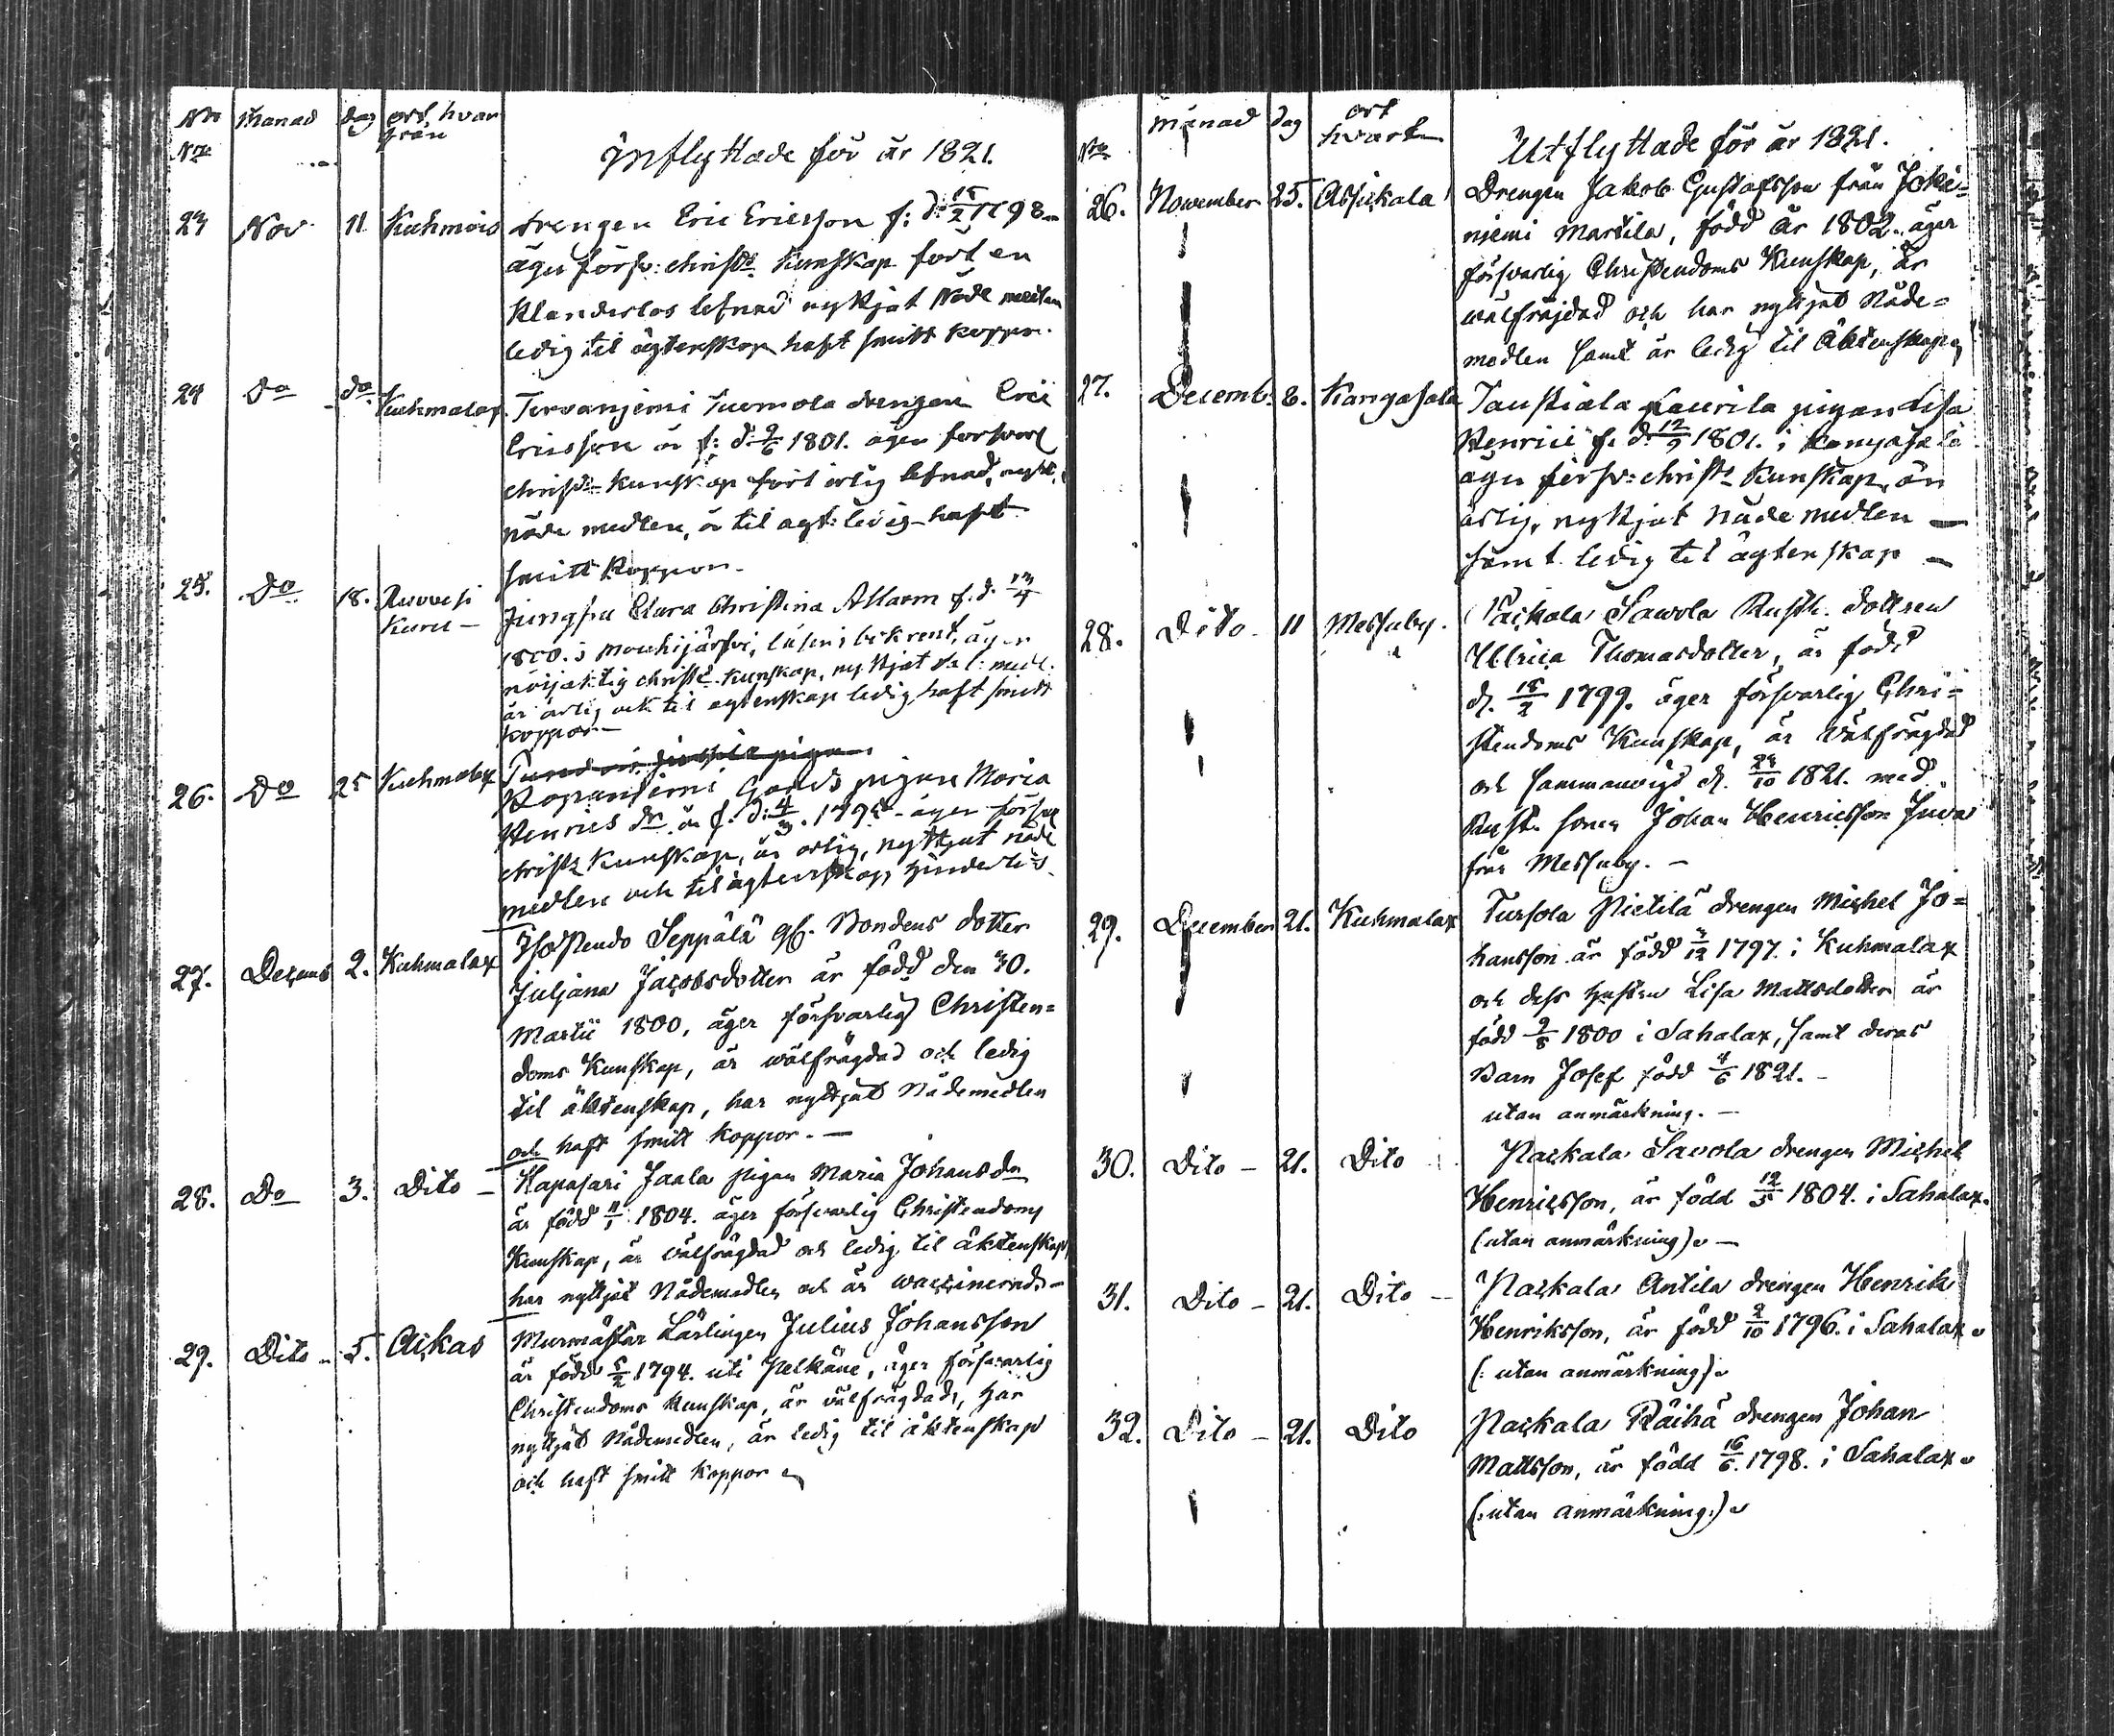 No Månad dag ort hvar
No från
Inflyttade för år 1821.
23 Nov 11 Kuhmois drengen Eric Ericsson f: d: 15/2 1798
äger försv: christ: kunskap fört en
klanderlös lefnad nyttjat Nåde medlen
ledig til ägtenskap haft smitt koppor.
24 Do do Kuhmalax Tervaniemi Tuomola drengen Eric
Ericsson är f: d: 9/6 1801. äger försvarl
christ: kunskap fört ärlig lefnad, nytt.
nåde medlen, är til ägt: ledig haft
smitt koppor.
25. Do 18. Ruovesi Jungfru Clara Christina Allarm f. d. 13/4
Kuru – 1800. i Mouhijärfvi, läser i bok rent, äger
nöijaktig christ: kunskap, nyttjat sal: medl.
är ärlig och til ägtenskap ledig haft smitt
koppor –
26. Do 25 Kuhmalax
Kopsaniemi Gårds pigan Maria
Henrics dr är f. d: 4/3. 1795 äger försv
christ: kunskap, är ärlig, nyttjat nåde
medlen och til ägtenskap hinderlös
27. Decemb 2. Kuhmalax Seppälä gf. Bondens dotter
Juliana Jacobsdotter är född den 30.
Martii 1800, äger försvarlig Christen=
doms Kunskap, är wälfrägdad och ledig
til äktenskap, har nyttjat Nådemedlen
och haft smitt koppor. —
28. Do 3. Dito – Hapasari Jaala pigan Maria Johansdr
är född 11/1 1804. äger försvarlig Christendoms
Kunskap, är wälfrägdad och ledig til äktenskap
har nyttjat Nådemedlen och är waccinerad –
29. Dito – 5. Ackas Murmästar Lärlingen Julius Johansson
är född 5/2 1794. uti Pelkäne, äger försvarlig
Christendoms kunskap, är välfrägdad, har
nyttjat Nådemedlen, är ledig til äktenskap
och haft smitt koppor
No månad dag ort
hvart
Utflyttade för år 1821.
26. November 25. Assickala Drengen Jakob Gustafsson från Joke=
niemi Martila, född år 1802. äger
försvarlig Christendoms Kunskap, är
wälfräjdad och har nyttjat Nåde=
medlen samt är ledig til Äktenskap
27. Decemb. 8. Kangasala Taustiala Laurila pigan Lisa
Henrici f. d: 12/9 1801. i Kangasala
äger försv: christ: Kunskap, är
ärlig, nyttjat nåde medlen —
samt ledig til ägtenskap –
28. Dito – 11 Messuby. Päckala Sawola Rusth. dottren
Ulrica Thomasdotter, är född
d. 15/2 1799. äger försvarlig Chri=
stendoms Kunskap, är Välfrägdad
och sammanvigd d. 28/10 1821. med
Rusth. sonen Johan Henricsson Juva
från Messuby. –
29. December 21. Kuhmalax Tursola Pietilä drengen Michel Jo=
hansson är född 3/12 1797. i Kuhmalax
och dess hustru Lisa Mattsdotter är
född 9/8 1800 i Sahalax, samt deras
Barn Josef född 4/6 1821. –
utan anmärkning. —
30. Dito – 21. Dito Päckala Savola drengen Michel
Henricsson, är född 12/5 1804. i Sahalax.
(utan anmärkning) —
31. Dito – 21. Dito – Päckala Antila drengen Henrik
Henriksson, är född 2/10 1796. i Sahalax
(: utan anmärkning)
32. Dito – 21. Dito Päckala Räihä drengen Johan
Mattsson, är född 16/6. 1798. i Sahalax
(: utan anmärkning.)